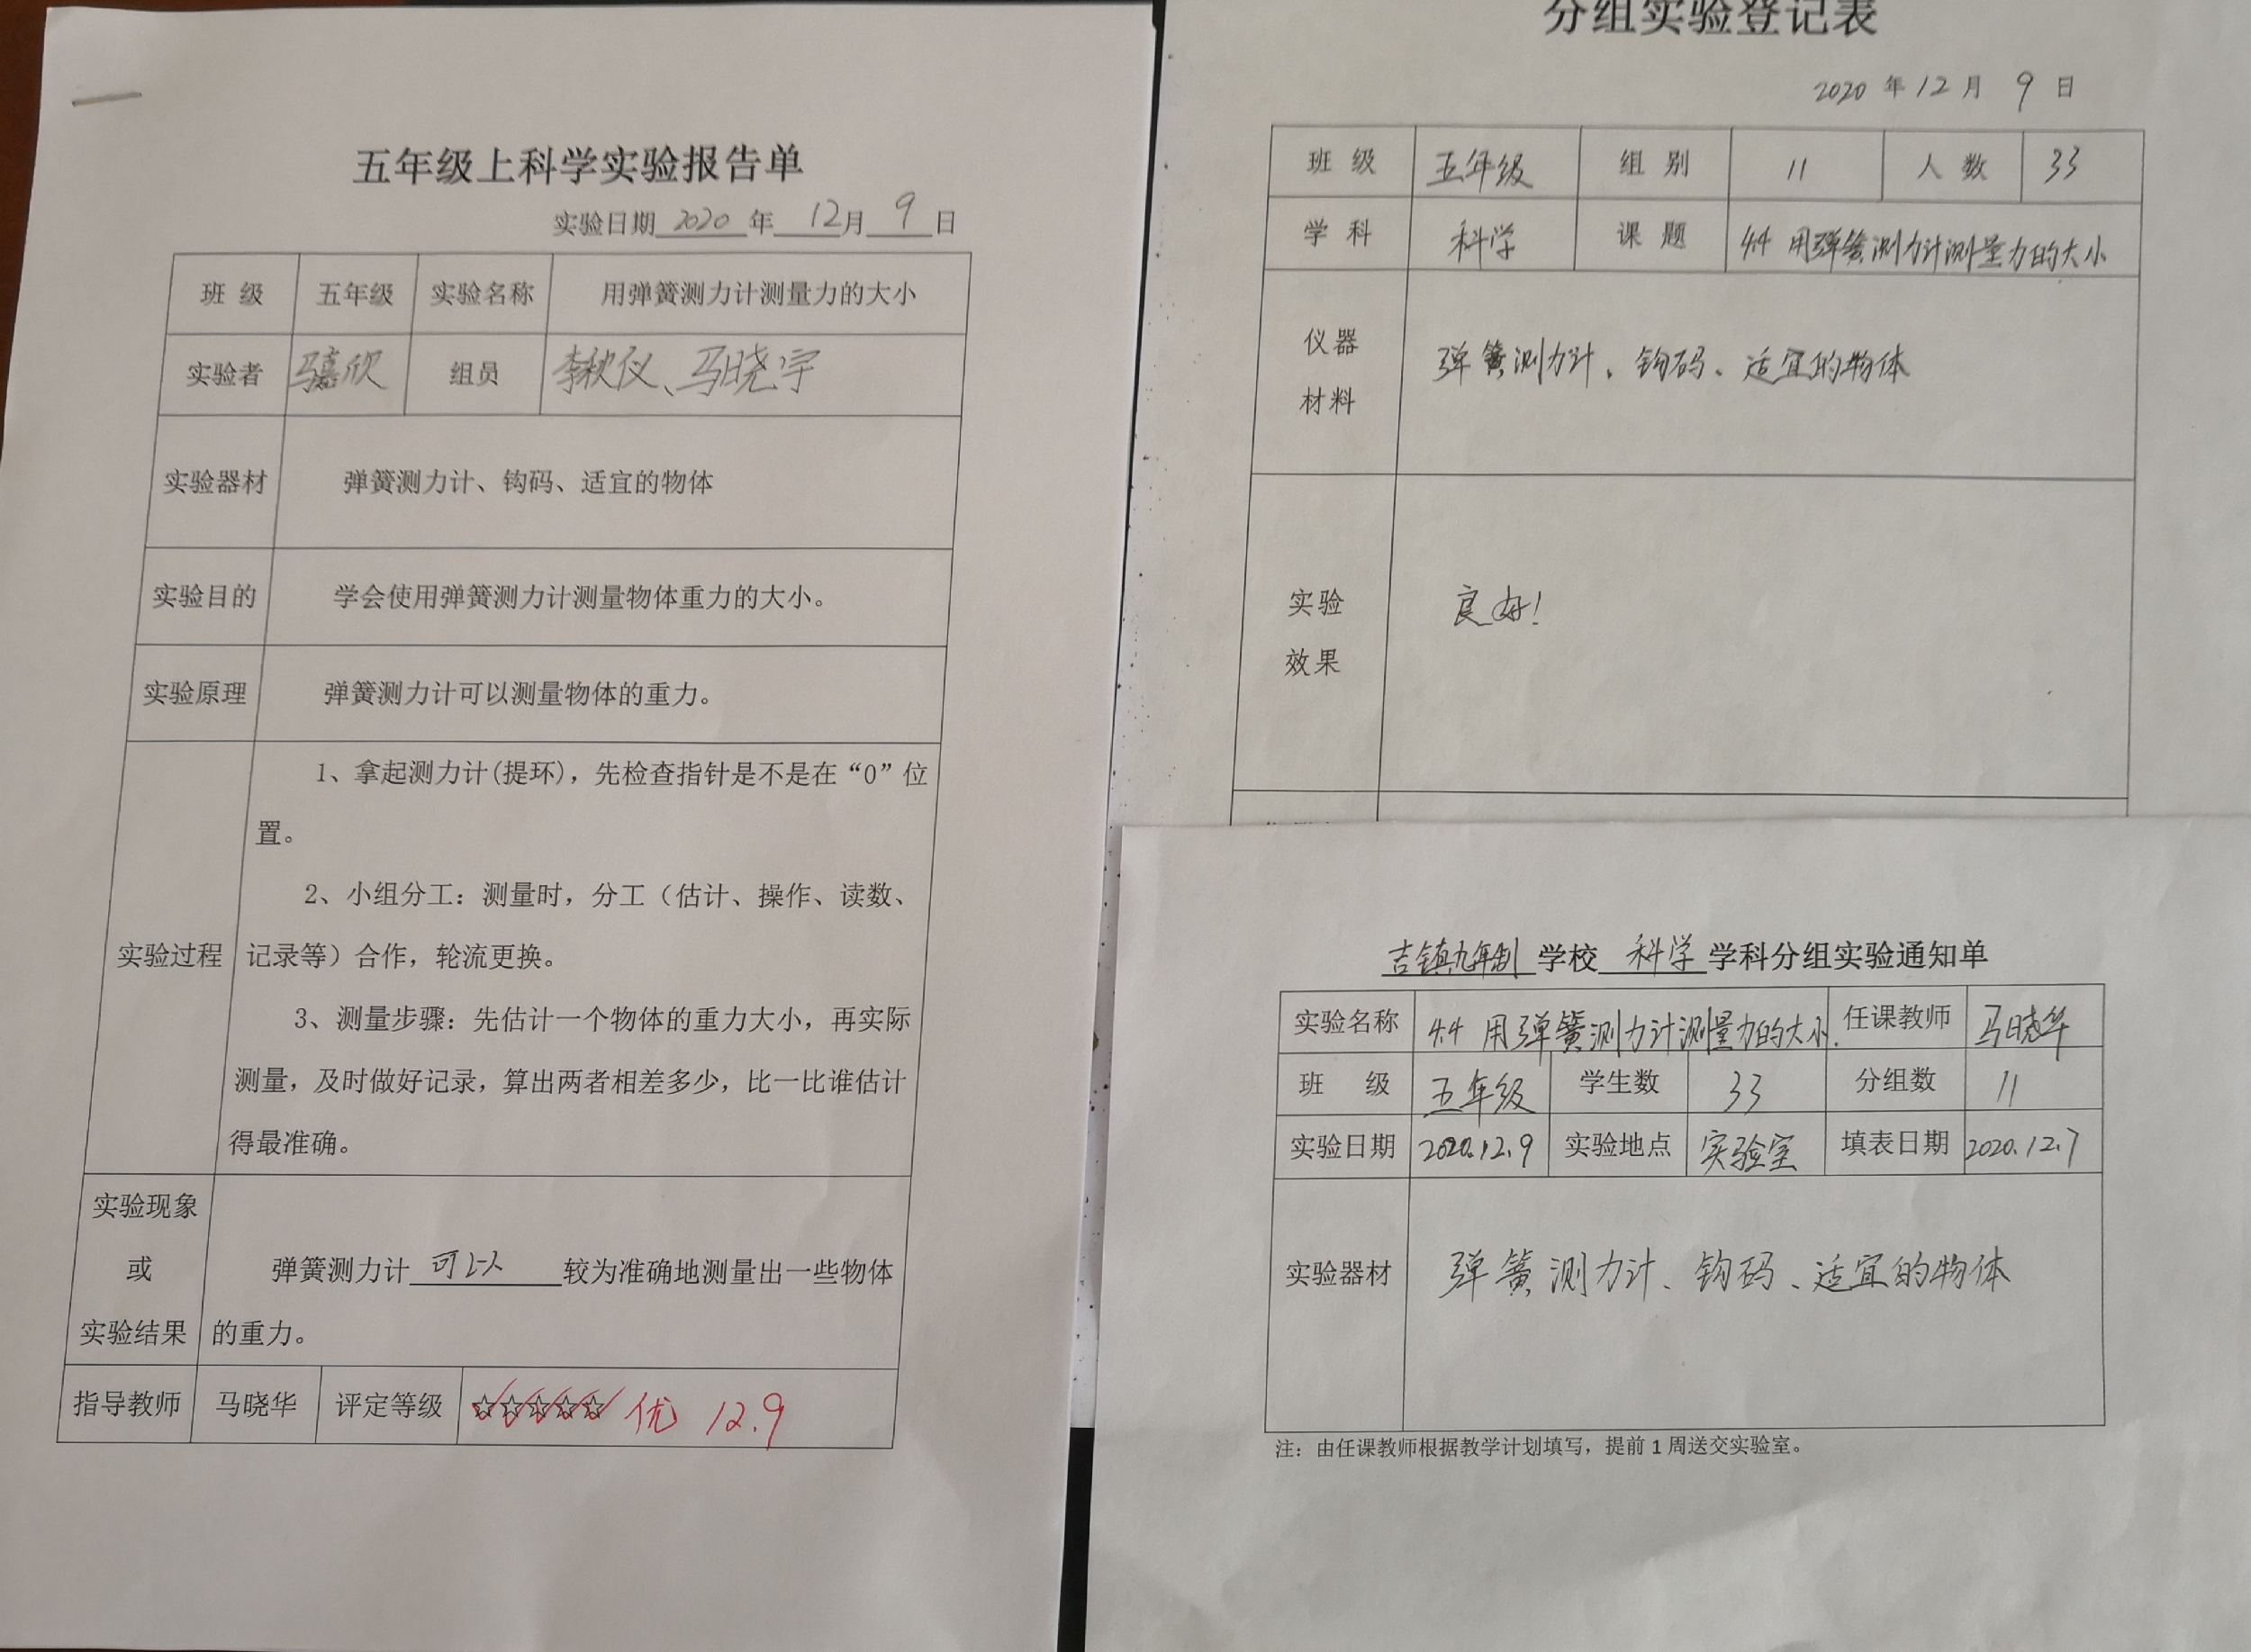 五年级上科学实验报告单
实验日期 2020 年 12月 9 日
班 级 五年级 实验名称 用弹簧测力计测量力的大小
实验者 马嘉欣 组员 李秋仪、马晓宇
实验器材 弹簧测力计、钩码、适宜的物体
实验目的 学会使用弹簧测力计测量物体重力的大小。
实验原理 弹簧测力计可以测量物体的重力。
实验过程
1、拿起测力计(提环)，先检查指针是不是在“0”位
置。
2、小组分工：测量时，分工（估计、操作、读数、
记录等）合作，轮流更换。
3、测量步骤：先估计一个物体的重力大小，再实际
测量，及时做好记录，算出两者相差多少，比一比谁估计
得最准确。
实验现象
或
实验结果
弹簧测力计 可以 较为准确地测量出一些物体
的重力。
指导教师 马晓华 评定等级 ☆☆☆☆☆ 优 12.9
分组实验登记表
2020 年 12 月 9 日
班 级 五年级 组 别 11 人 数 33
学 科 科学 课 题 4.4 用弹簧测力计测量力的大小
仪器
材料
弹簧测力计、钩码、适宜的物体
实验
效果
良好!
吉镇九年制 学校 科学 学科分组实验通知单
实验名称 4.4 用弹簧测力计测量力的大小. 任课教师 马晓华
班 级 五年级 学生数 33 分组数 11
实验日期 2020.12.9 实验地点 实验室 填表日期 2020.12.7
实验器材 弹簧测力计、钩码、适宜的物体
注：由任课教师根据教学计划填写，提前 1 周送交实验室。